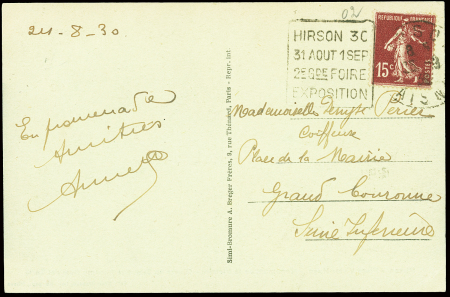 24-8-30
En promenade
Amitiés
02
HIRSON 30
31 AOUT 1 SEP
2E GDE FOIRE
EXPOSITION
REPUBLIQUE FRANÇAISE
15c
POSTES
AISNE
Mademoiselle Périer
Coiffeuse
Place de la Mairie
Grand Couronne
Seine Inférieure
Simi-Bromure A. Breger Frères, 9, rue Thénard, Paris - Repr. int.